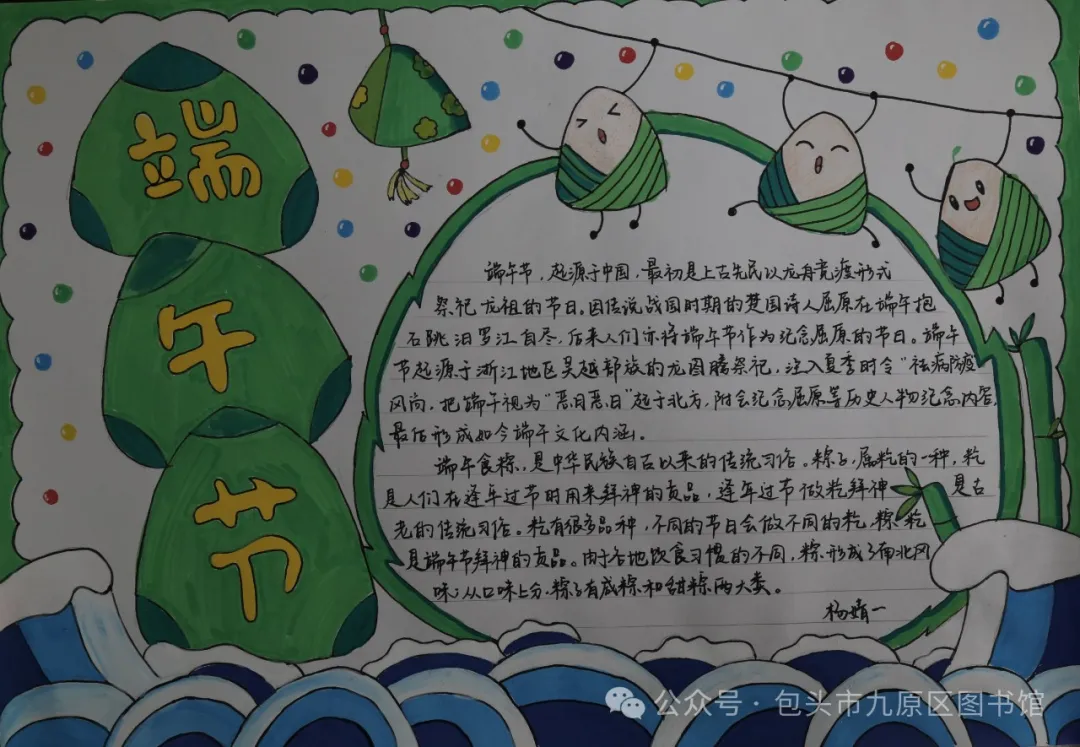 端
午
节
端午节，起源于中国，最初是上古先民以龙舟竞渡形式
祭祀龙祖的节日。因传说战国时期的楚国诗人屈原在端午抱
石跳汨罗江自尽，后来人们亦将端午节作为纪念屈原的节日。端午
节起源于浙江地区吴越部族的龙图腾祭祀，注入夏季时令“祛病防疫”
风尚，把端午视为“恶月恶日”起于北方，附会纪念屈原等历史人物纪念内容，
最后形成如今端午文化内涵。
端午食粽，是中华民族自古以来的传统习俗。粽子，属粄的一种，粄
是人们在逢年过节时用来拜神的贡品，逢年过节做粄拜神是古
老的传统习俗。粄有很多品种，不同的节日会做不同的粄，粽粄
是端午节拜神的贡品。由于各地饮食习惯的不同，粽形成了南北风
味；从口味上分，粽子有咸粽和甜粽两大类。
杨婧一
公众号·包头市九原区图书馆